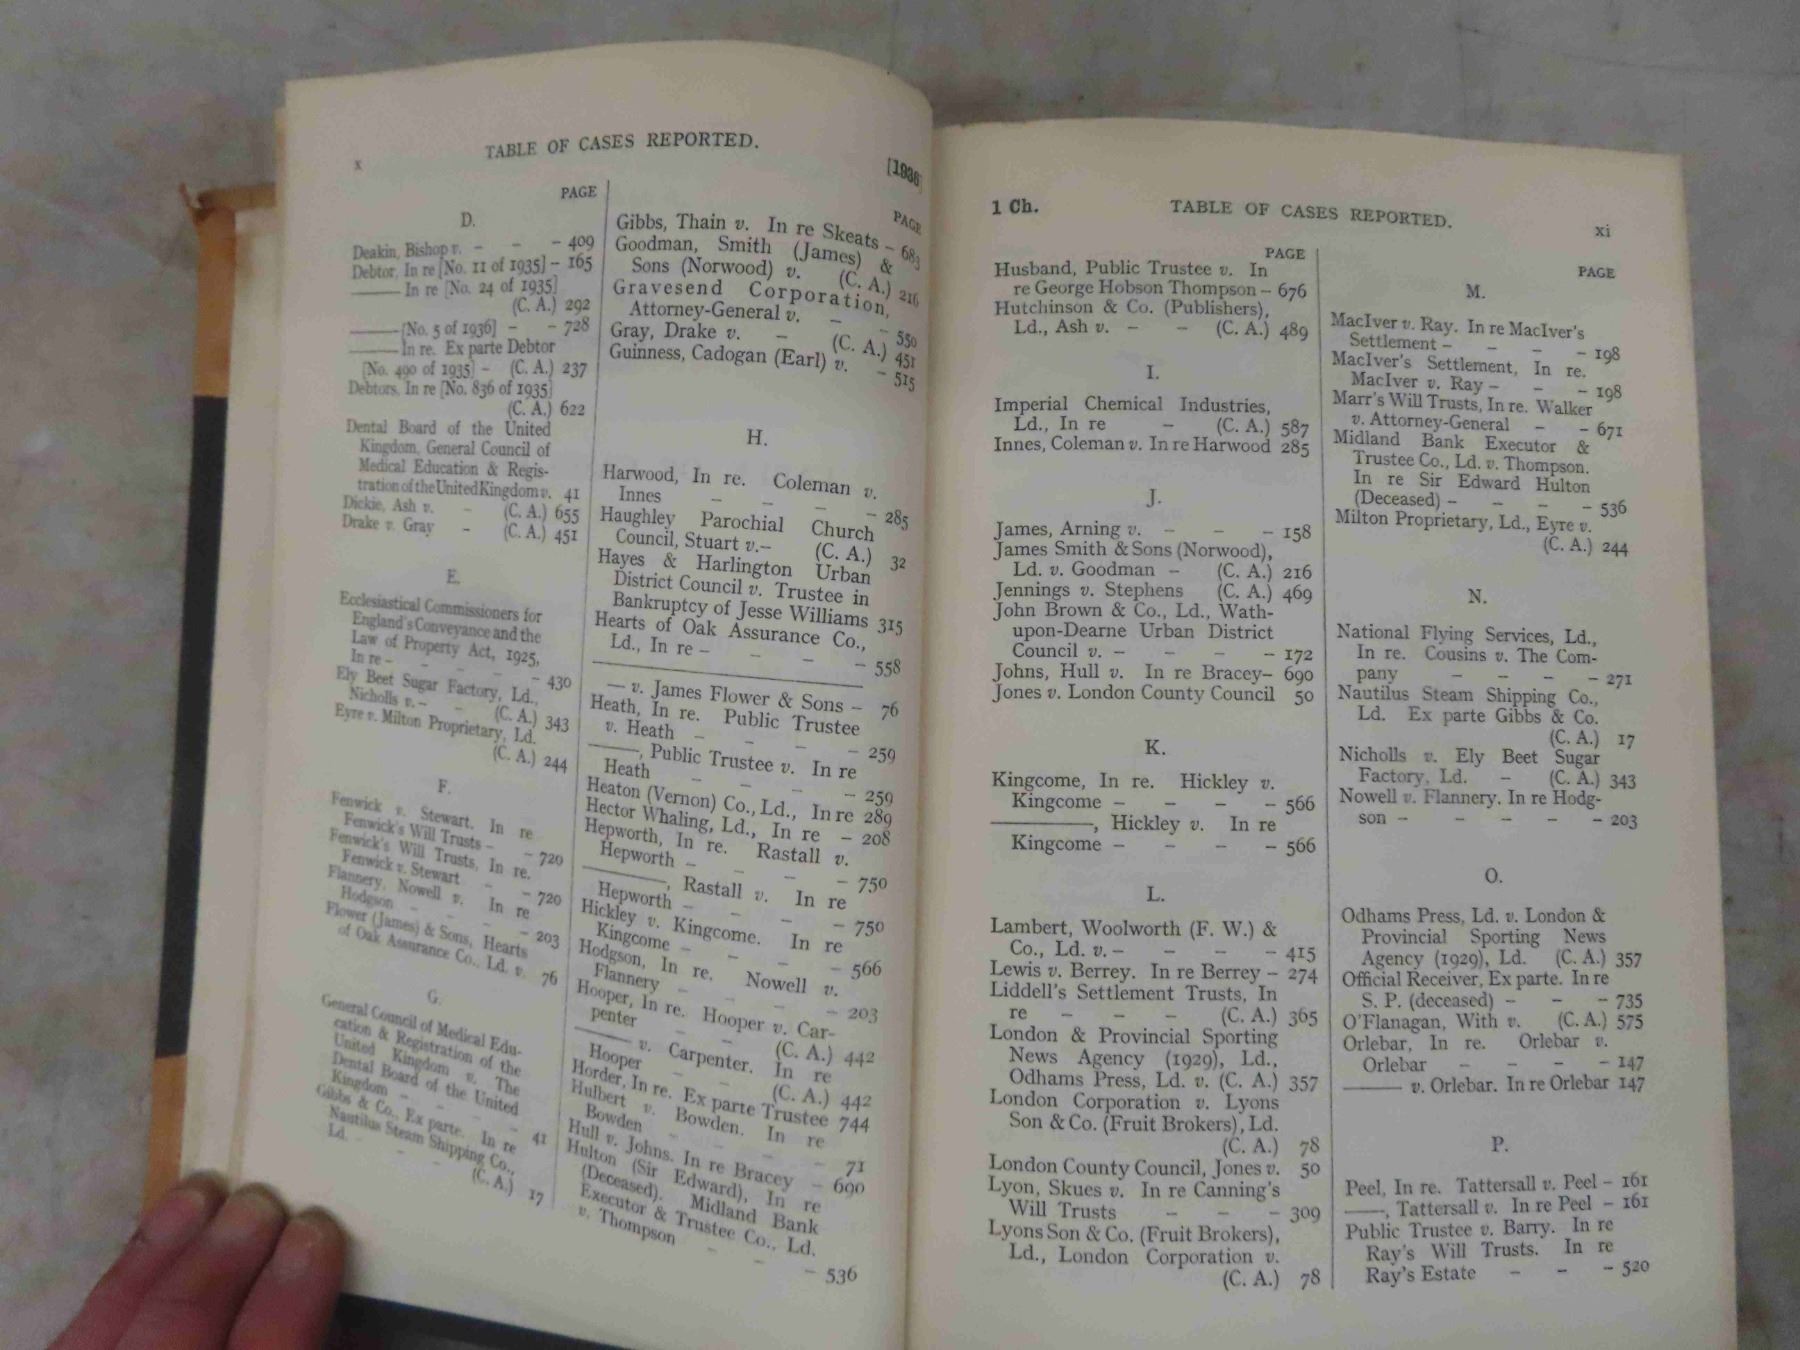 x
TABLE OF CASES REPORTED.
[1936]
PAGE
D.
Deakin, Bishop v. – – – 409
Debtor, In re [No. 11 of 1935] – 165
——— In re [No. 24 of 1935]
(C. A.) 292
——— [No. 5 of 1936] – – 728
——— In re. Ex parte Debtor
[No. 490 of 1935] – (C. A.) 237
Debtors, In re [No. 836 of 1935]
(C. A.) 622
Dental Board of the United
Kingdom, General Council of
Medical Education & Regis-
tration of the United Kingdom v. 41
Dickie, Ash v. – (C. A.) 655
Drake v. Gray – (C. A.) 451
E.
Ecclesiastical Commissioners for
England's Conveyance and the
Law of Property Act, 1925,
In re – – – – – 430
Ely Beet Sugar Factory, Ld.,
Nicholls v. – – (C. A.) 343
Eyre v. Milton Proprietary, Ld.
(C. A.) 244
F.
Fenwick v. Stewart. In re
Fenwick's Will Trusts – – 720
Fenwick's Will Trusts, In re.
Fenwick v. Stewart – – 720
Flannery, Nowell v. In re
Hodgson – – – – 203
Flower (James) & Sons, Hearts
of Oak Assurance Co., Ld. v. 76
G.
General Council of Medical Edu-
cation & Registration of the
United Kingdom v. The
Dental Board of the United
Kingdom – – – – 41
Gibbs & Co., Ex parte. In re
Nautilus Steam Shipping Co.,
Ld. – – – (C. A.) 17
PAGE
Gibbs, Thain v. In re Skeats – 683
Goodman, Smith (James) &
Sons (Norwood) v. (C. A.) 216
Gravesend Corporation,
Attorney-General v. – – 550
Gray, Drake v. – (C. A.) 451
Guinness, Cadogan (Earl) v. – 515
H.
Harwood, In re. Coleman v.
Innes – – – – 285
Haughley Parochial Church
Council, Stuart v. – (C. A.) 32
Hayes & Harlington Urban
District Council v. Trustee in
Bankruptcy of Jesse Williams 315
Hearts of Oak Assurance Co.,
Ld., In re – – – – 558
———————
— v. James Flower & Sons – 76
Heath, In re. Public Trustee
v. Heath – – – – 259
———, Public Trustee v. In re
Heath – – – – 259
Heaton (Vernon) Co., Ld., In re 289
Hector Whaling, Ld., In re – 208
Hepworth, In re. Rastall v.
Hepworth – – – – 750
———, Rastall v. In re
Hepworth – – – – 750
Hickley v. Kingcome. In re
Kingcome – – – – 566
Hodgson, In re. Nowell v.
Flannery – – – – 203
Hooper, In re. Hooper v. Car-
penter – – (C. A.) 442
——— v. Carpenter. In re
Hooper – – (C. A.) 442
Horder, In re. Ex parte Trustee 744
Hulbert v. Bowden. In re
Bowden – – – – 71
Hull v. Johns. In re Bracey – 690
Hulton (Sir Edward), In re
(Deceased). Midland Bank
Executor & Trustee Co., Ld.
v. Thompson – – – 536
1 Ch.
TABLE OF CASES REPORTED.
xi
PAGE
Husband, Public Trustee v. In
re George Hobson Thompson – 676
Hutchinson & Co. (Publishers),
Ld., Ash v. – – (C. A.) 489
I.
Imperial Chemical Industries,
Ld., In re – (C. A.) 587
Innes, Coleman v. In re Harwood 285
J.
James, Arning v. – – – 158
James Smith & Sons (Norwood),
Ld. v. Goodman – (C. A.) 216
Jennings v. Stephens (C. A.) 469
John Brown & Co., Ld., Wath-
upon-Dearne Urban District
Council v. – – – – 172
Johns, Hull v. In re Bracey – 690
Jones v. London County Council 50
K.
Kingcome, In re. Hickley v.
Kingcome – – – – 566
———, Hickley v. In re
Kingcome – – – – 566
L.
Lambert, Woolworth (F. W.) &
Co., Ld. v. – – – – 415
Lewis v. Berrey. In re Berrey – 274
Liddell's Settlement Trusts, In
re – – – (C. A.) 365
London & Provincial Sporting
News Agency (1929), Ld.,
Odhams Press, Ld. v. (C. A.) 357
London Corporation v. Lyons
Son & Co. (Fruit Brokers), Ld.
(C. A.) 78
London County Council, Jones v. 50
Lyon, Skues v. In re Canning's
Will Trusts – – – 309
Lyons Son & Co. (Fruit Brokers),
Ld., London Corporation v.
(C. A.) 78
PAGE
M.
MacIver v. Ray. In re MacIver's
Settlement – – – – 198
MacIver's Settlement, In re.
MacIver v. Ray – – – 198
Marr's Will Trusts, In re. Walker
v. Attorney-General – – 671
Midland Bank Executor &
Trustee Co., Ld. v. Thompson.
In re Sir Edward Hulton
(Deceased) – – – – 536
Milton Proprietary, Ld., Eyre v.
(C. A.) 244
N.
National Flying Services, Ld.,
In re. Cousins v. The Com-
pany – – – – 271
Nautilus Steam Shipping Co.,
Ld. Ex parte Gibbs & Co.
(C. A.) 17
Nicholls v. Ely Beet Sugar
Factory, Ld. – (C. A.) 343
Nowell v. Flannery. In re Hodg-
son – – – – – 203
O.
Odhams Press, Ld. v. London &
Provincial Sporting News
Agency (1929), Ld. (C. A.) 357
Official Receiver, Ex parte. In re
S. P. (deceased) – – – 735
O'Flanagan, With v. (C. A.) 575
Orlebar, In re. Orlebar v.
Orlebar – – – – 147
——— v. Orlebar. In re Orlebar 147
P.
Peel, In re. Tattersall v. Peel – 161
——, Tattersall v. In re Peel – 161
Public Trustee v. Barry. In re
Ray's Will Trusts. In re
Ray's Estate – – – 520